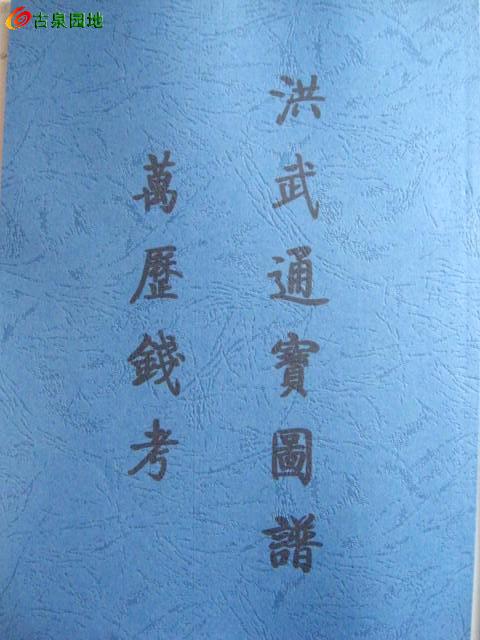 古泉园地
洪武通寶圖譜
萬歷錢考